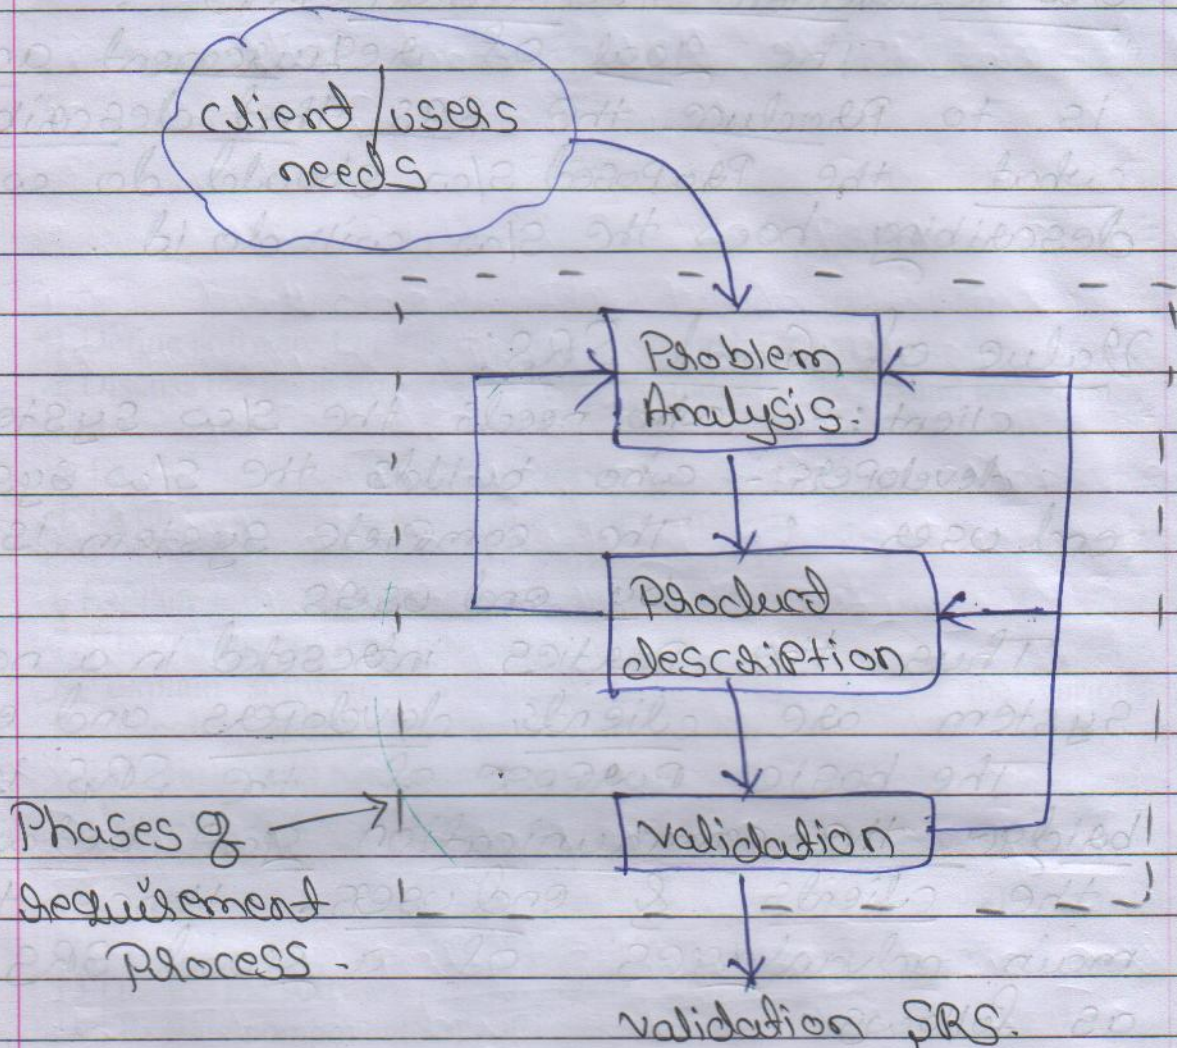 client/users
needs
Problem
Analysis.
Product
description
validation
Phases of
requirement
Process.
validation SRS.